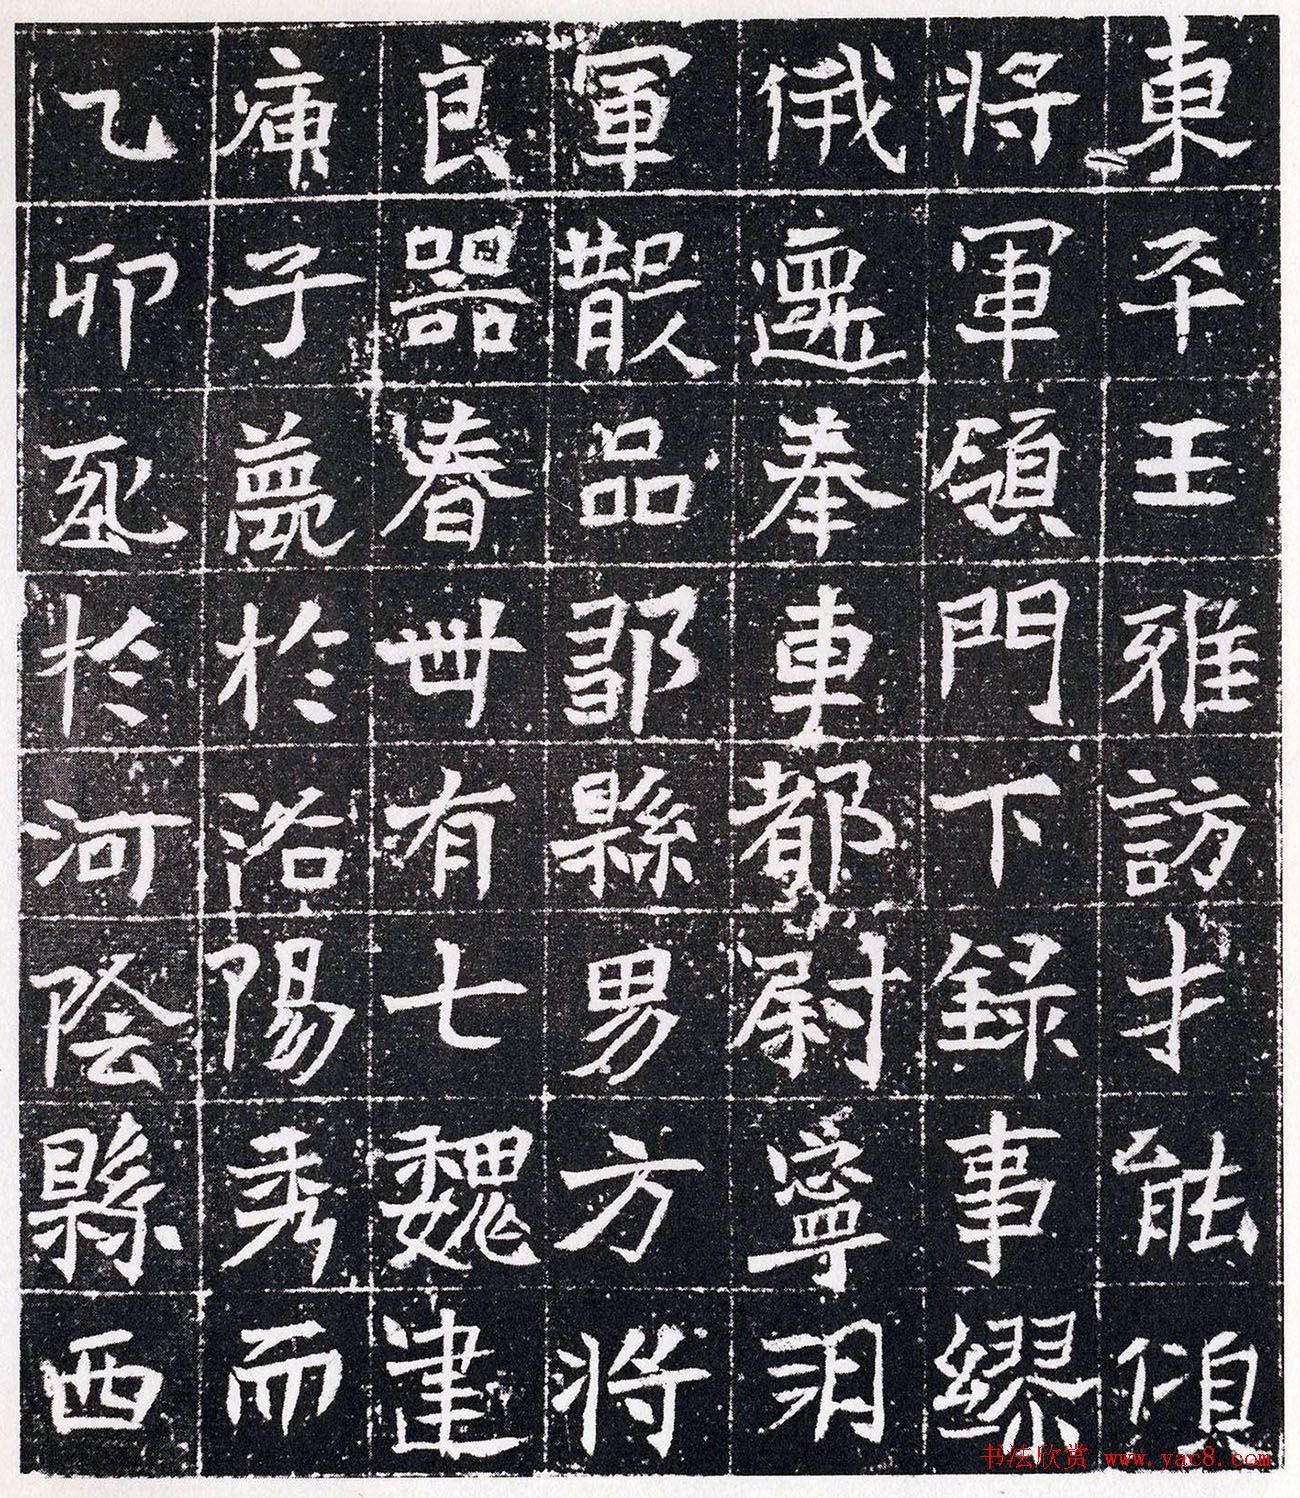 東平王雅訪才能傾
将軍領門下録事繆
俄遷奉車都尉寧朔
軍散品鄒縣男方将
良器春卌有七魏建
庚子薨於洛陽秀而
乙卯葬於河陰縣西
书法欣赏 www.yac8.com